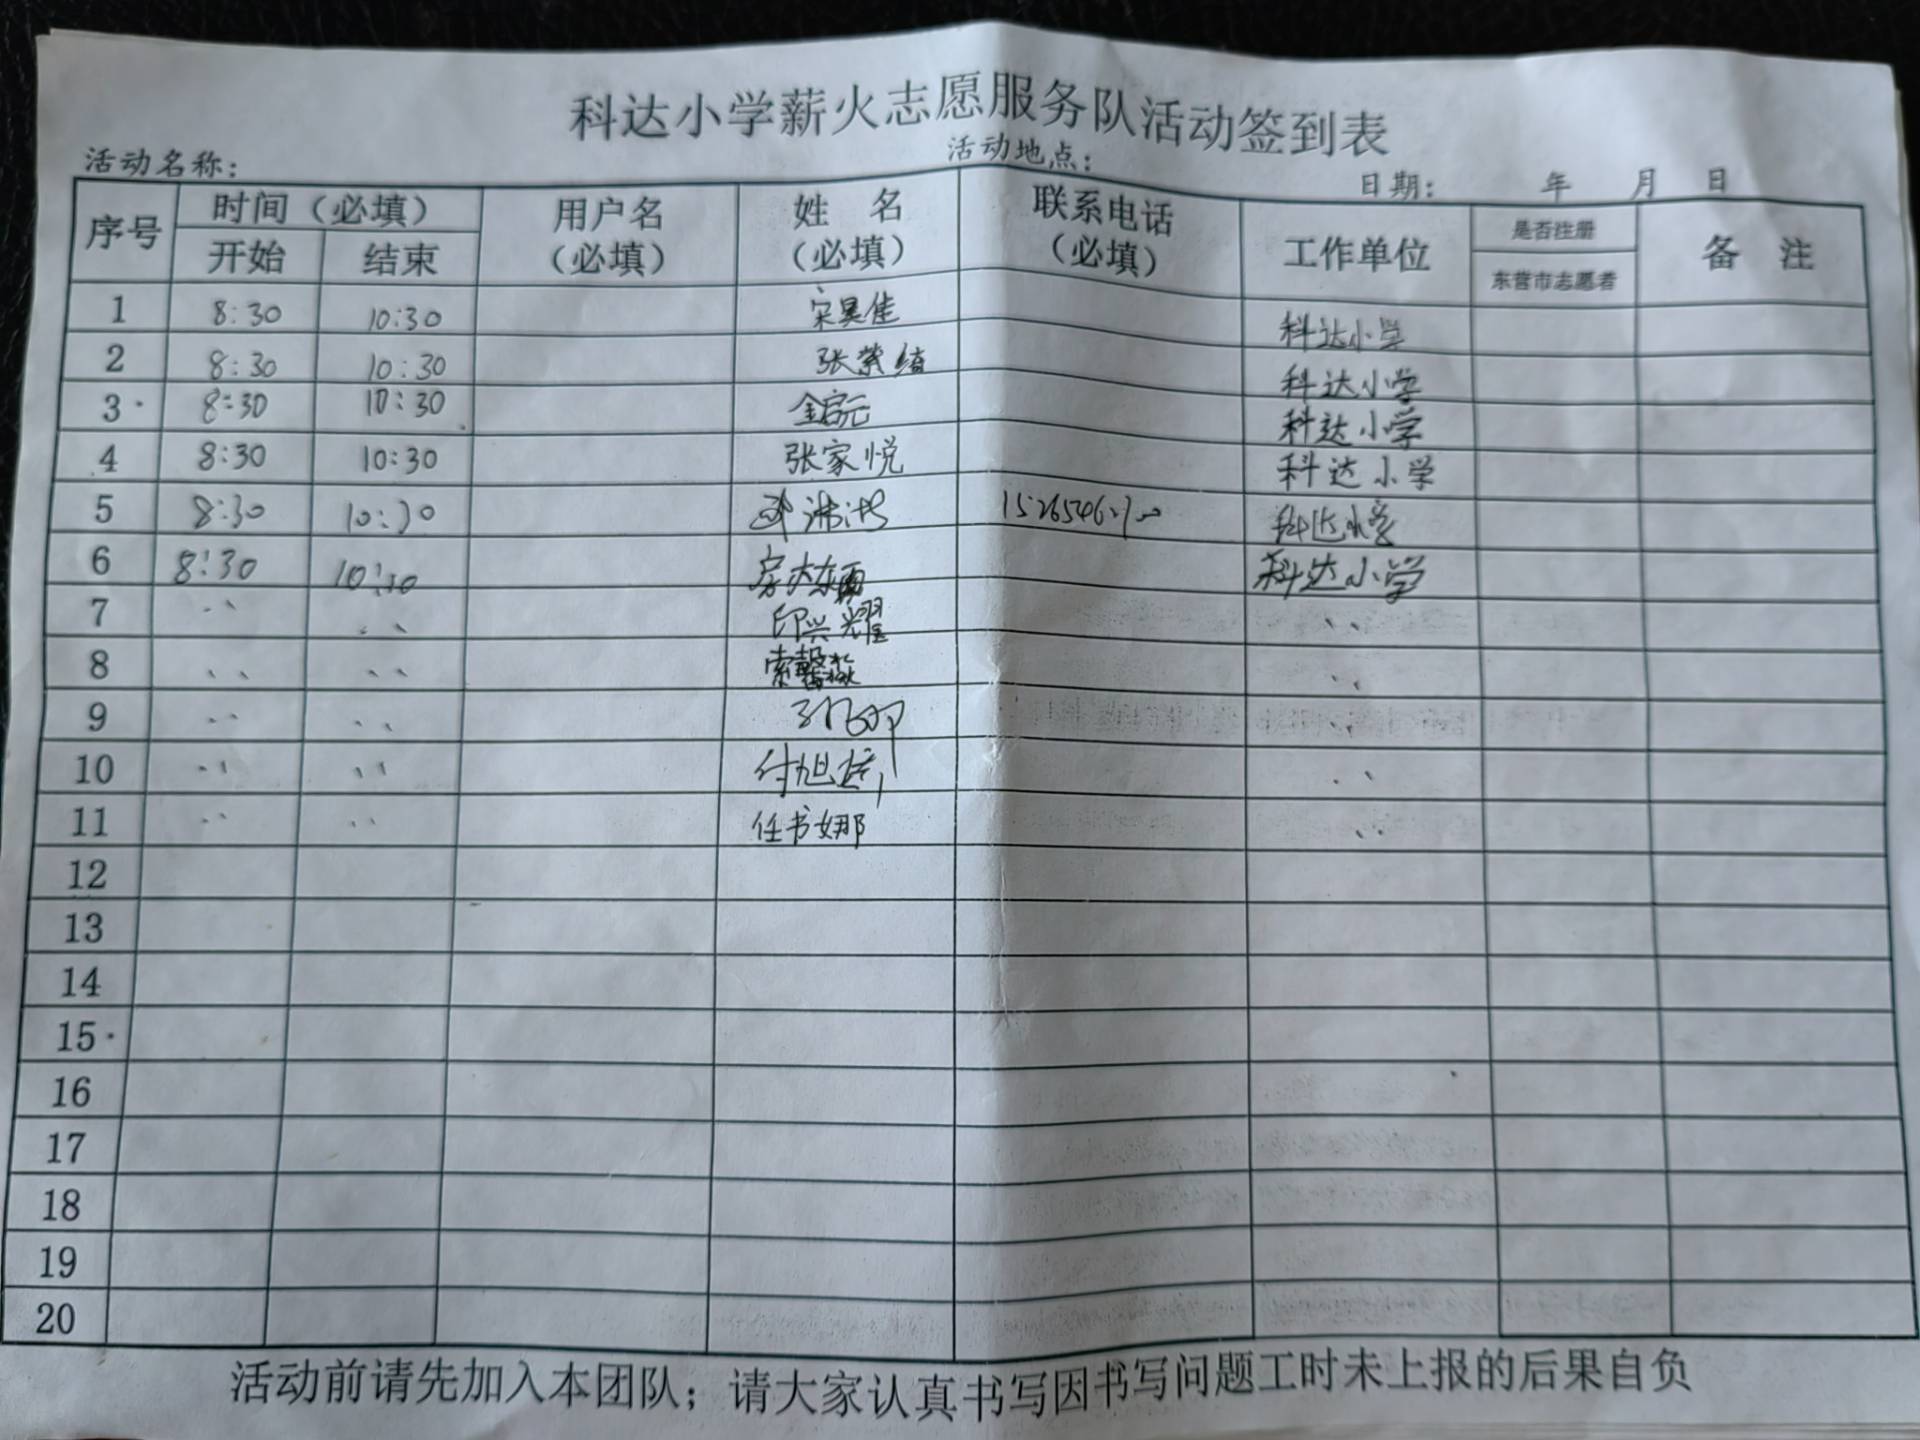 科达小学薪火志愿服务队活动签到表
活动名称： 活动地点： 日期： 年 月 日
序号 时间（必填） 用户名（必填） 姓 名（必填） 联系电话（必填） 工作单位 是否注册 备 注
开始 结束 东营市志愿者
1 8:30 10:30 宋昊佳 科达小学
2 8:30 10:30 张紫绮 科达小学
3 8:30 10:30 金启元 科达小学
4 8:30 10:30 张家悦 科达小学
5 8:30 10:30 科达小学
6 8:30 10:30 科达小学
7 〃 〃 印兴耀 〃
8 〃 〃 索馨 〃
9 〃 〃 〃
10 〃 〃 付旭 〃
11 〃 〃 任书娜 〃
12
13
14
15
16
17
18
19
20
活动前请先加入本团队；请大家认真书写因书写问题工时未上报的后果自负